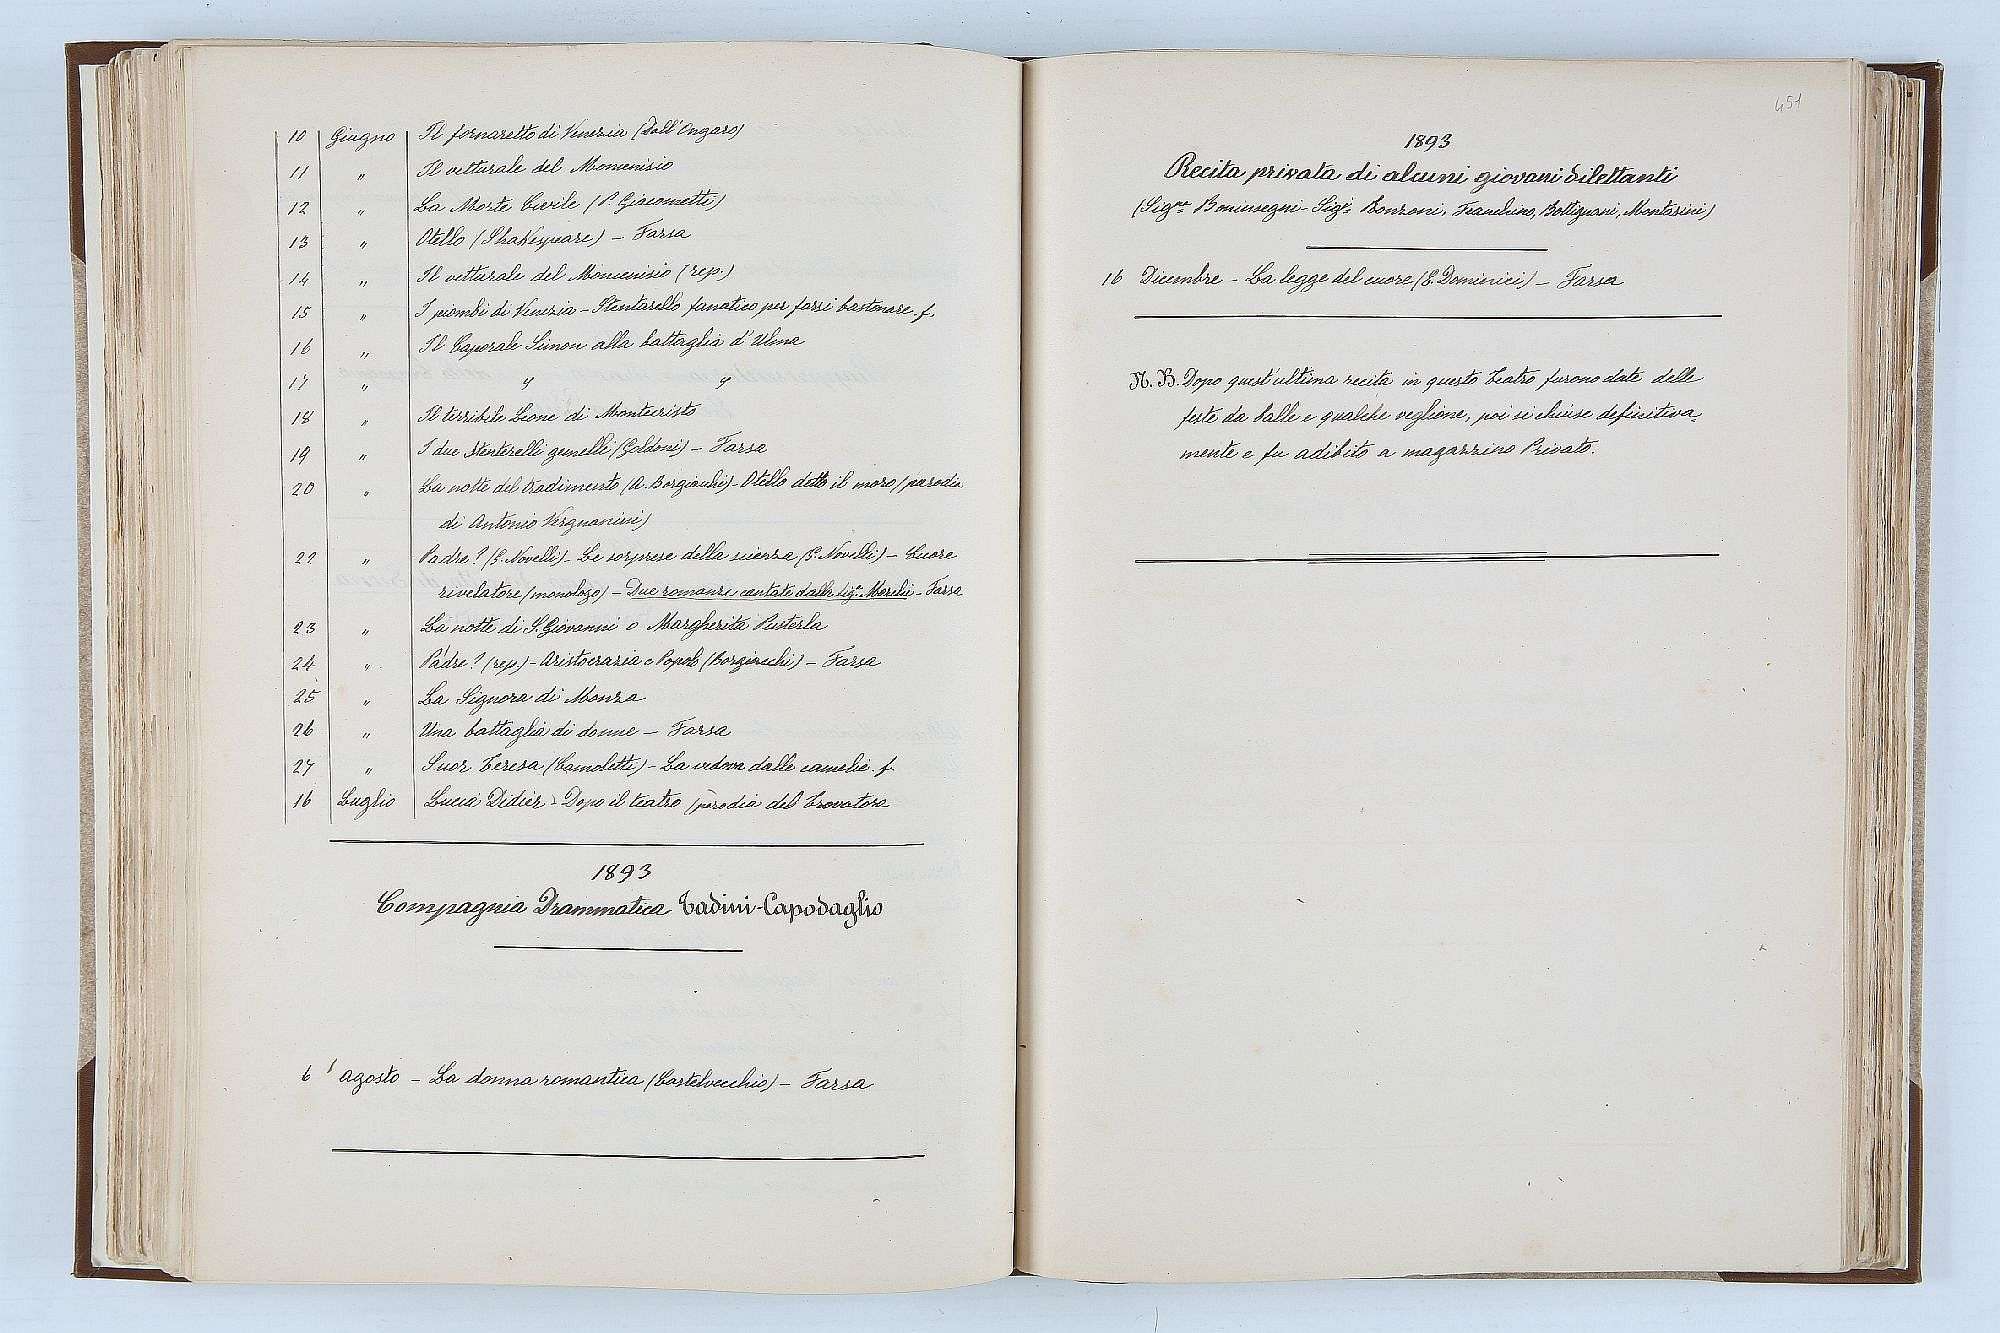 10 Giugno Il fornaretto di Venezia (Dall'Ongaro)
11 " Il vetturale del Moncenisio
12 " La Morte Civile (P. Giacometti)
13 " Otello (Shakespeare) – Farsa
14 " Il vetturale del Moncenisio (rep.)
15 " I piombi di Venezia – Stentarello fanatico per farsi bastonare f.
16 " Il Caporale Simon alla battaglia d'Ulma
17 " " "
18 " Il terribile Leone di Montecristo
19 " I due Stenterelli gemelli (Goldoni) – Farsa
20 " La notte del tradimento (A. Borgiacchi) – Otello detto il moro (parodia
di Antonio Vergnanini)
22 " Padre? (E. Novelli) – Le sorprese della scienza (E. Novelli) – Cuore
rivelatore (monologo) – Due romanze cantate dalla Sigra Merelii – Farsa
23 " La notte di S. Giovanni o Margherita Pusterla
24 " Padre? (rep.) – Aristocrazia e Popolo (Borgiacchi) – Farsa
25 " La Signora di Monza
26 " Una battaglia di donne – Farsa
27 " Suor Teresa (Camoletti) – La vedova dalle camelie f.
16 Luglio Lucia Didier – Dopo il teatro (parodia del Trovatore
1893
Compagnia Drammatica Tadini-Capodaglio
6 agosto – La donna romantica (Castelvecchio) – Farsa
451
1893
Recita privata di alcuni giovani dilettanti
(Sigre Boninsegni – Sigri Bonzoni, Franchino, Bottignani, Montanini)
16 Dicembre – La legge del cuore (E. Dominici) – Farsa
N. B. Dopo quest'ultima recita in questo Teatro furono date delle
feste da ballo e qualche veglione, poi si chiuse definitiva-
mente e fu adibito a magazzino Privato.